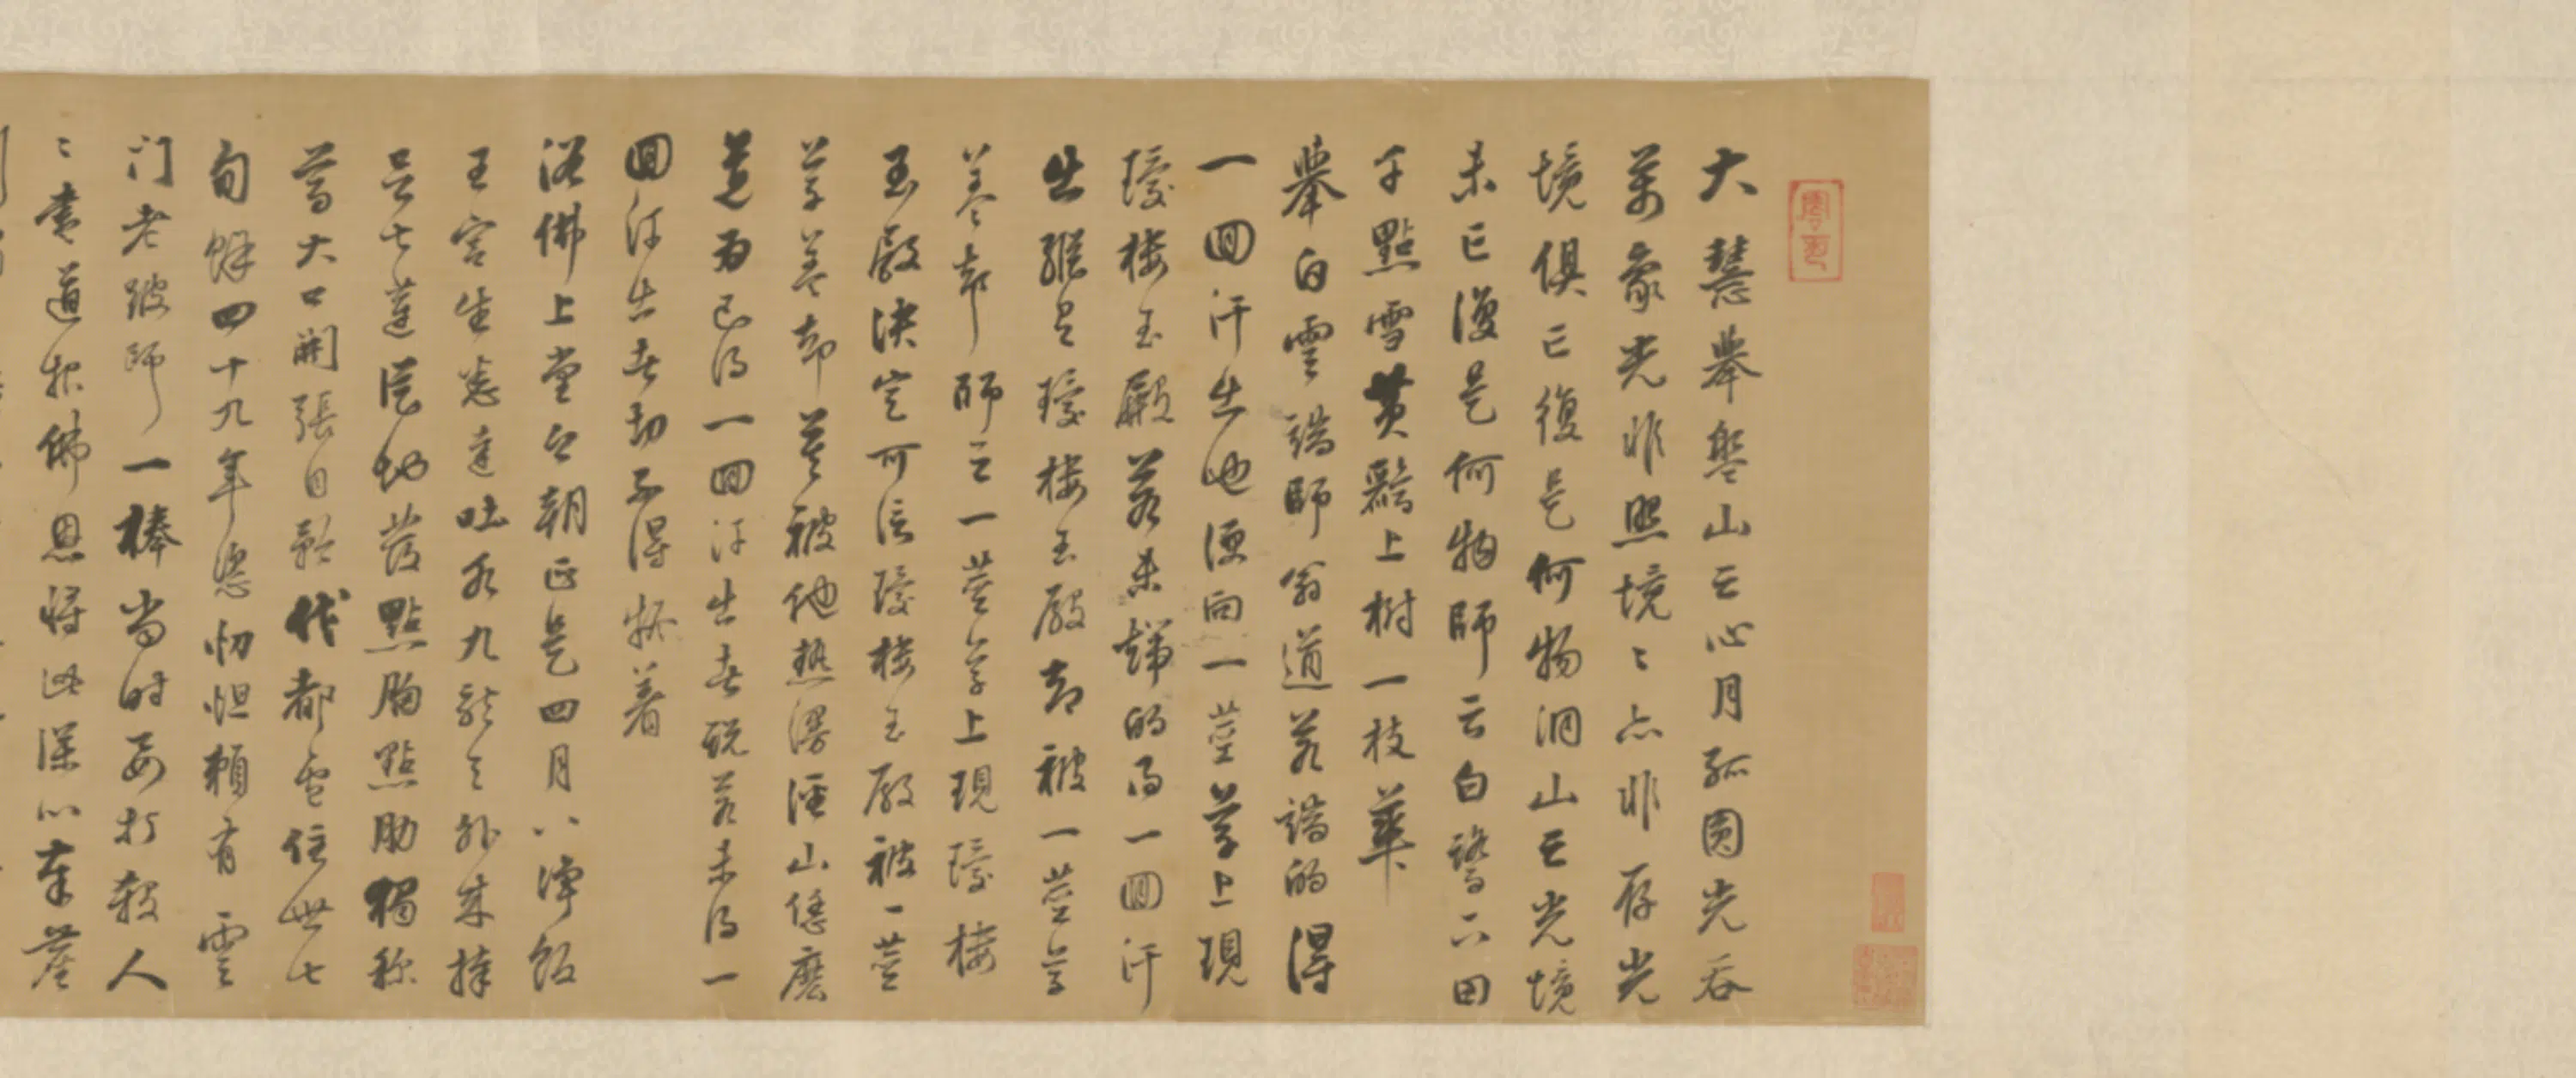 大慧舉盤山云心月孤圓光吞
萬象光非照境〻亦非存光
境俱亡復是何物洞山云光境
未亡復是何物師云白鷺下田
千點雪黃鸝上樹一枝華
舉白雲端師翁道若端的得
一回汗出也便向一莖草上現
瓊樓玉殿若未端的得一回汗
出縱有瓊樓玉殿却被一莖草
蓋却師云一莖草上現瓊樓
玉殿決定可信瓊樓玉殿被一莖
草蓋却莫被他熱謾徑山恁麼
道為已得一回汗出者說若未得一
回汗出者切不得著
浴佛上堂今朝正是四月八淨飯
王宮生悉達吐水九龍天外來捧
足七蓮從地發點胸點肋獨稱
尊大口開張自矜伐都盧住世七
旬餘四十九年恣忉怛賴有雲
門老跛師一棒當時要打殺人
〻盡道報佛恩將此深心奉塵